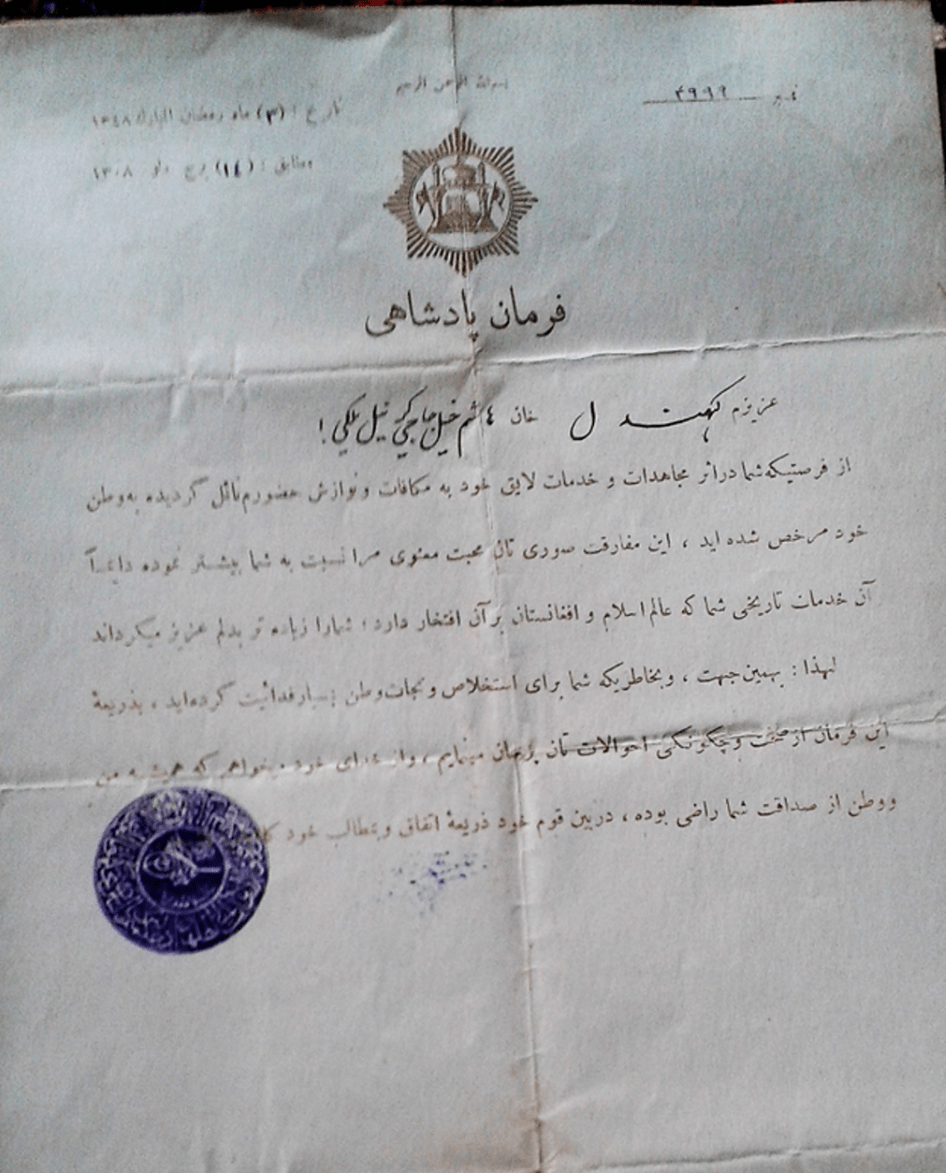 بسم الله الرحمن الرحيم
نمبر ۴۹۹۹
تاریخ : (۳) ماه رمضان المبارك ۱۳٤۸
مطابق : (۱٤) برج دلو ۱۳۰۸
فرمان پادشاهی
عزیزم کهندل خان هاشم خیل جاجی کرنیل ملکی !
از فرصتیکه شما دراثر مجاهدات و خدمات لایق خود به مکافات و نوازش حضورم نائل گردیده به وطن
خود مرخص شده اید ، این مفارقت صوری تان محبت معنوی مرا نسبت به شما بیشتر نموده دایماً
آن خدمات تاریخی شما که عالم اسلام و افغانستان برآن افتخار دارد ، شمارا زیاده تر بدلم عزیز میگرداند
لهذا : بهمین جهت ، وبخاطریکه شما برای استخلاص و نجات وطن بسیار فدائیت کرده اید ، بذریعهٔ
این فرمان از صحت و چگونگی احوالات تان پرسان مینمایم ، واز خدای خود میخواهم که همیشه من
ووطن از صداقت شما راضی بوده ، دربین قوم خود ذریعهٔ اتفاق و بمطالب خود